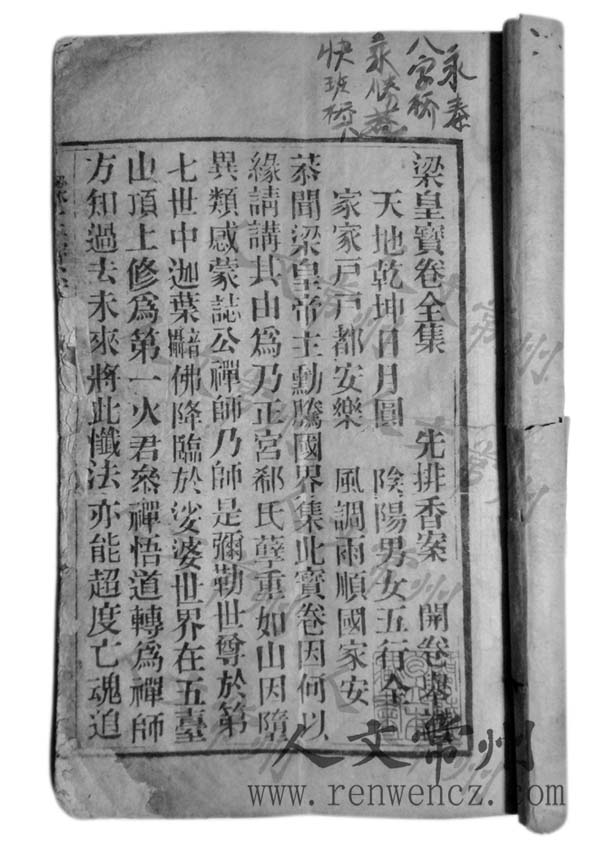 永泰
八字桥
永
快班桥
梁皇寶卷全集 先排香案 開卷舉讚
天地乾坤日月圓 陰陽男女五行全
家家戸戸都安樂 風調雨順國家安
恭聞梁皇帝主勳騰國界集此寶卷因何以
緣請講其由爲乃正宮郗氏孽重如山因墮
異類感蒙誌公禪師乃師是彌勒世尊於第
七世中迦葉佛降臨於娑婆世界在五臺
山頂上修爲第一火君叅禪悟道轉爲禪師
方知過去未來將此懺法亦能超度亡魂追
人文常州
www.renwencz.com